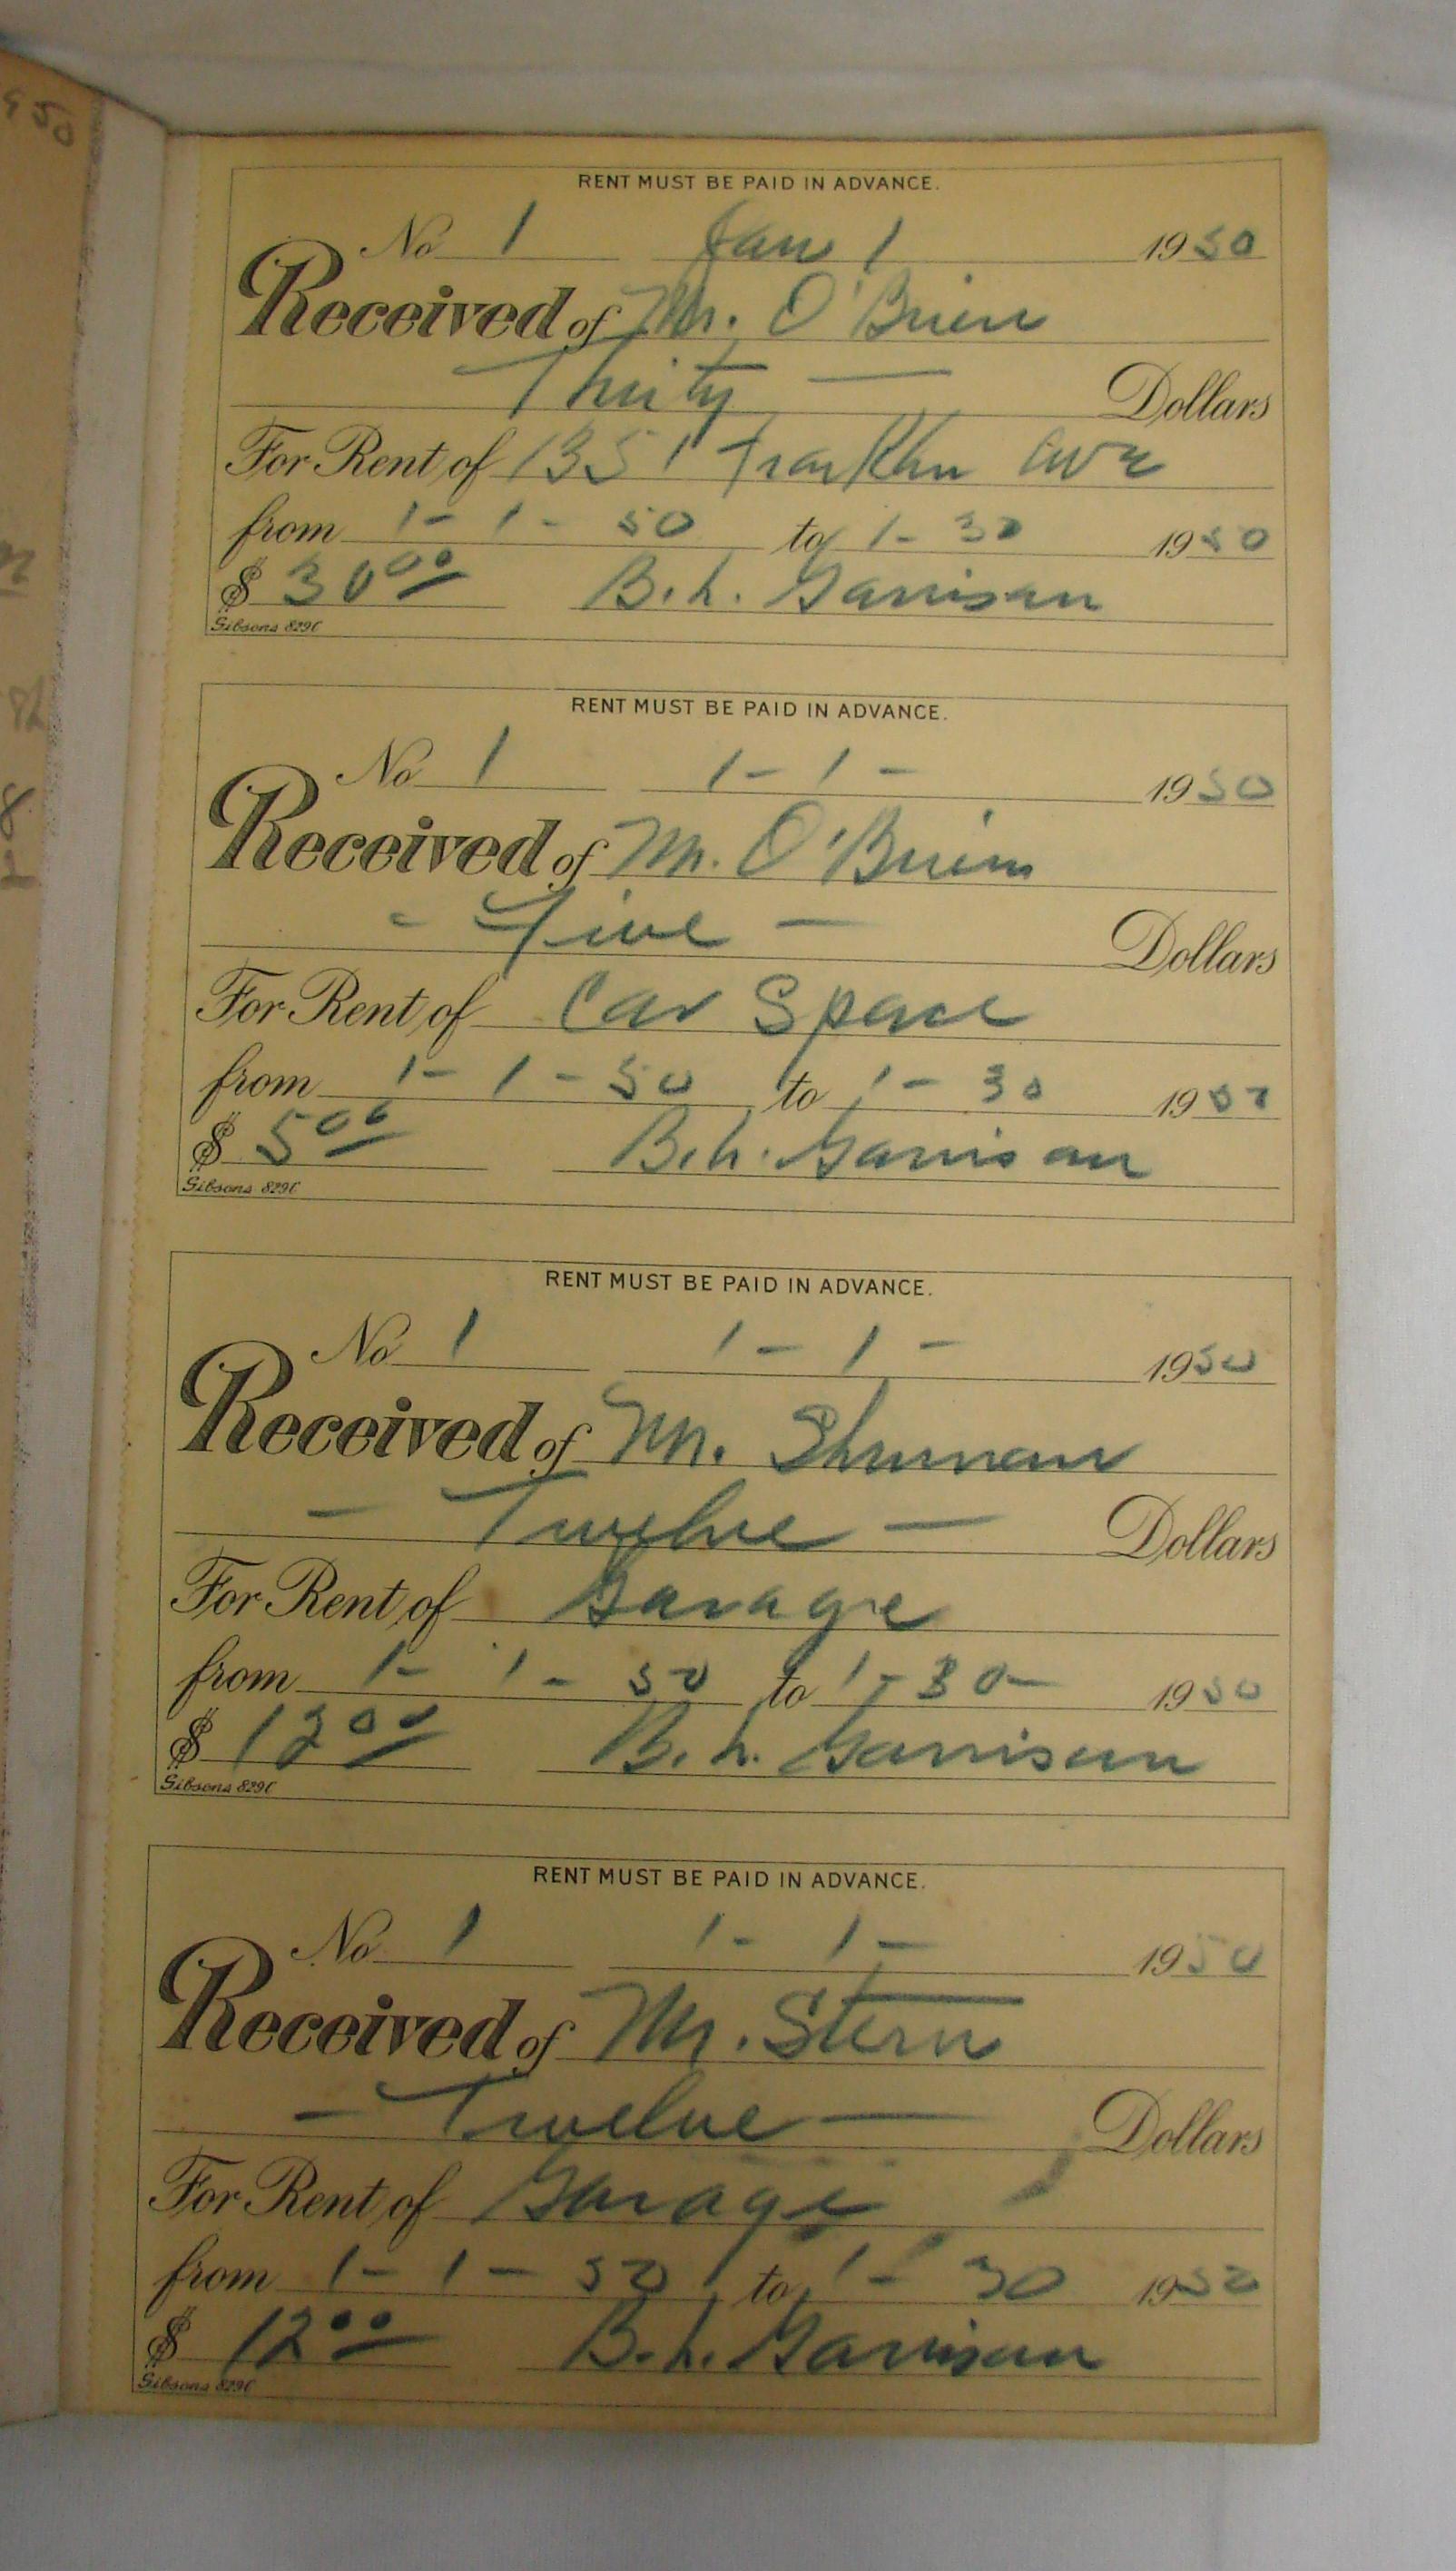 RENT MUST BE PAID IN ADVANCE.
No 1 Jan 1 1950
Received of Mr. O'Brien
Thirty — Dollars
For Rent of 1351 Franklin Ave
from 1-1-50 to 1-30 1950
$ 30 00 B. L. Garrison
Gibsons 829C
RENT MUST BE PAID IN ADVANCE.
No 1 1-1- 1950
Received of Mr. O'Brien
- Five — Dollars
For Rent of Car Space
from 1-1-50 to 1-30 1950
$ 5 00 B. L. Garrison
Gibsons 829C
RENT MUST BE PAID IN ADVANCE.
No 1 1-1- 1950
Received of Mr. Shuman
— Twelve — Dollars
For Rent of Garage
from 1-1-50 to 1-30- 1950
$ 12 00 B. L. Garrison
Gibsons 829C
RENT MUST BE PAID IN ADVANCE.
No 1 1-1- 1950
Received of Mr. Stern
— Twelve — Dollars
For Rent of Garage
from 1-1-50 to 1-30 1950
$ 12 00 B. L. Garrison
Gibsons 829C